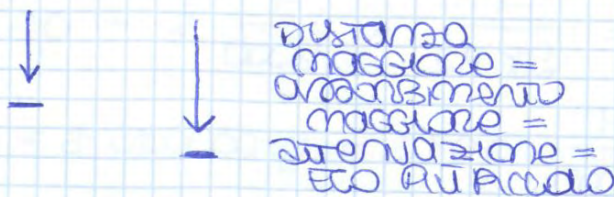 DISTANZA
MAGGIORE =
ASSORBIMENTO
MAGGIORE =
ATTENUAZIONE =
ECO PIÙ PICCOLO